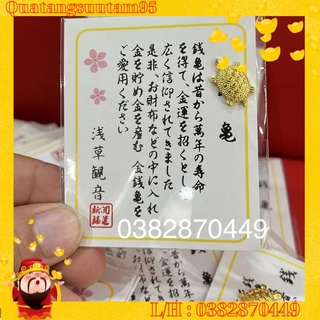 Quatangsuutam95
亀
銭亀は昔から萬年の寿命
を得て、金運を招くとし
広く信仰されてきました
是非、お財布などの中に入れ
金を貯め金を産む 金銭亀を
ご愛用ください
浅草観音
開運
0382870449
L/H : 0382870449